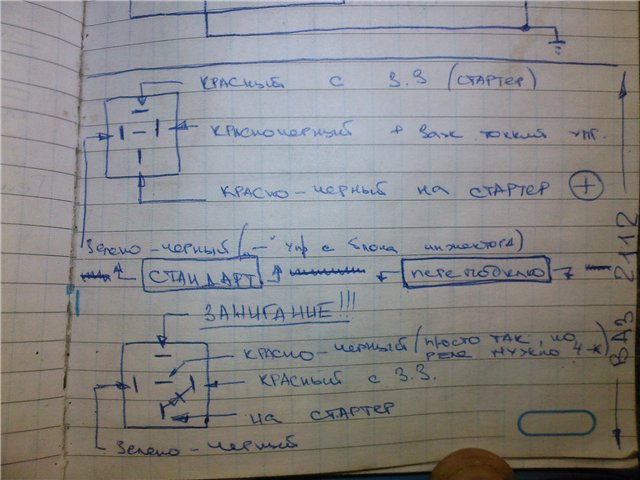 КРАСНЫЙ С З.З (СТАРТЕР)
КРАСНОЧЕРНЫЙ + Заж. тонкий упр.
КРАСНО-ЧЕРНЫЙ НА СТАРТЕР +
Зелено-черный ("—" упр с блока инжектора)
СТАНДАРТ
ЗАЖИГАНИЕ!!!
КРАСНО-черный (просто ТАК, НО
реле НУЖНО 4-К)
КРАСНЫЙ С З.З.
НА СТАРТЕР
Зелено-черный
ВАЗ 2112